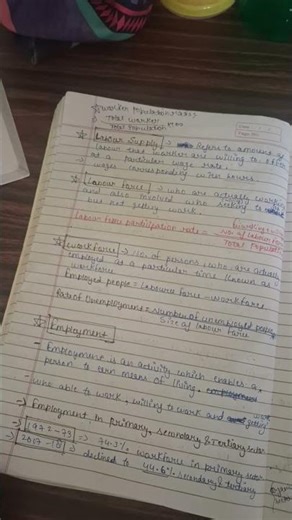 ☆ Worker Population Ratio
= Total worker ×100
Total Population
Date
Page No.
☆ Labour Supply → Refers to amount of
labour that workers are willing to offer
at a particular wage rate.
→ wages corresponding when hours.
☆ Labour force → who are actually working
and also involve who seeking to work
but not getting work.
Labour force participation rate = No. of Labour force
Total Population
☆ Workforce → No. of persons, who are actually
employed at a particular time known as
workforce
Employed people = Labours force - workforce
Rate of Unemployment = Number of unemployed people
Size of labour force
☆ Employment
- Employment is an activity which enables a
person to earn means of living.
- who able to work, willing to work and getting work
→ Employment in primary, secondary & Tertiary sector
→ 1972-73 => 74.3% workforce in primary sector
→ 2017-18 => declined to 44.6% secondary & tertiary